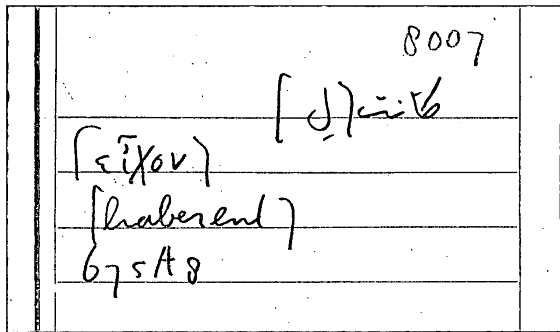 8007
كانت [لـ]
[εἶχον]
[haberent]
675A8